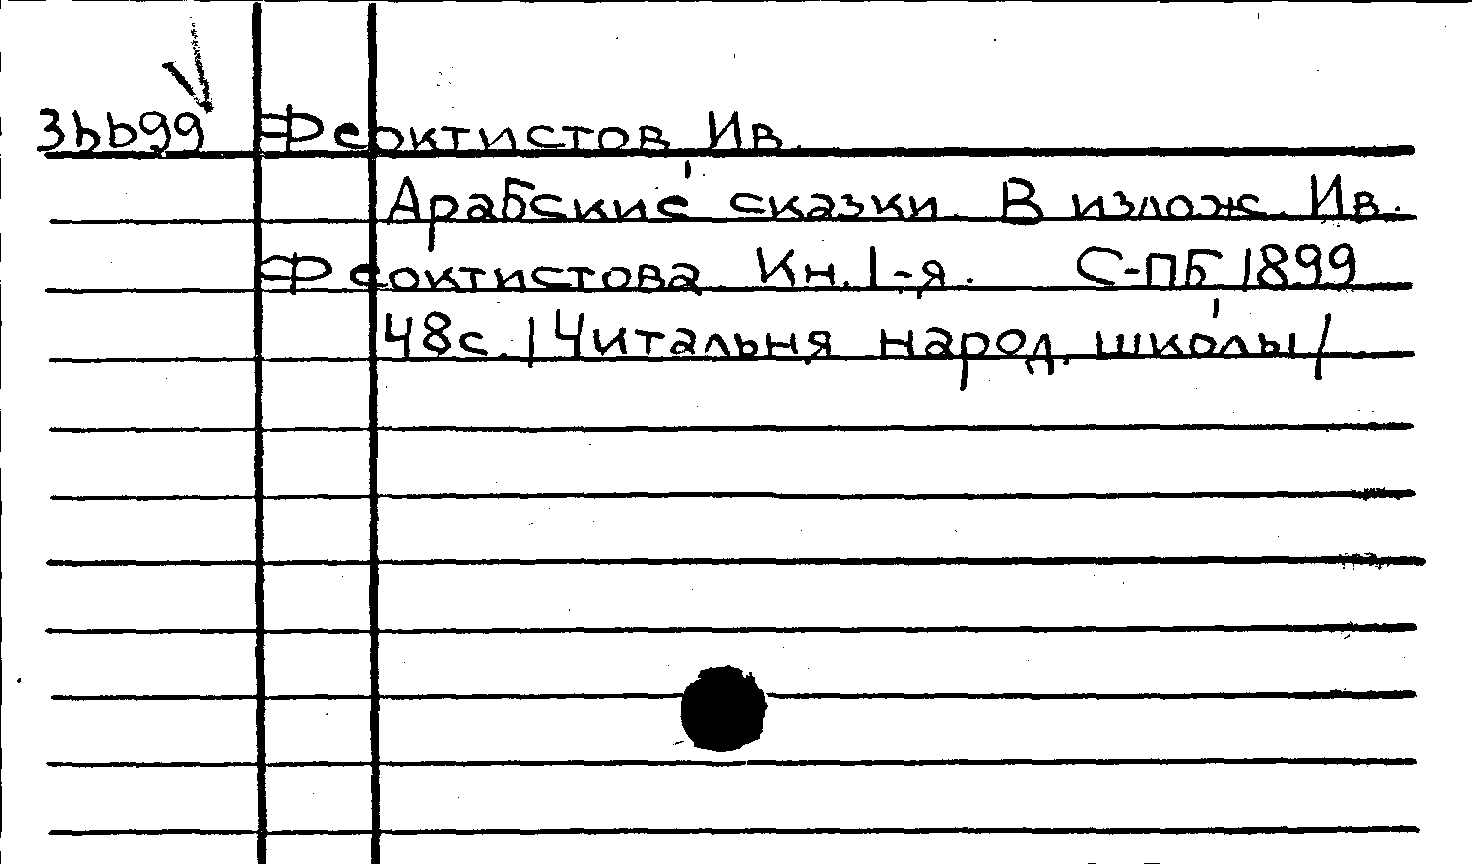 36699 Феоктистов Ив.
Арабские сказки. В излож. Ив.
Феоктистова. Кн. I-я. С-ПБ 1899
48с. /Читальня народ. школы/